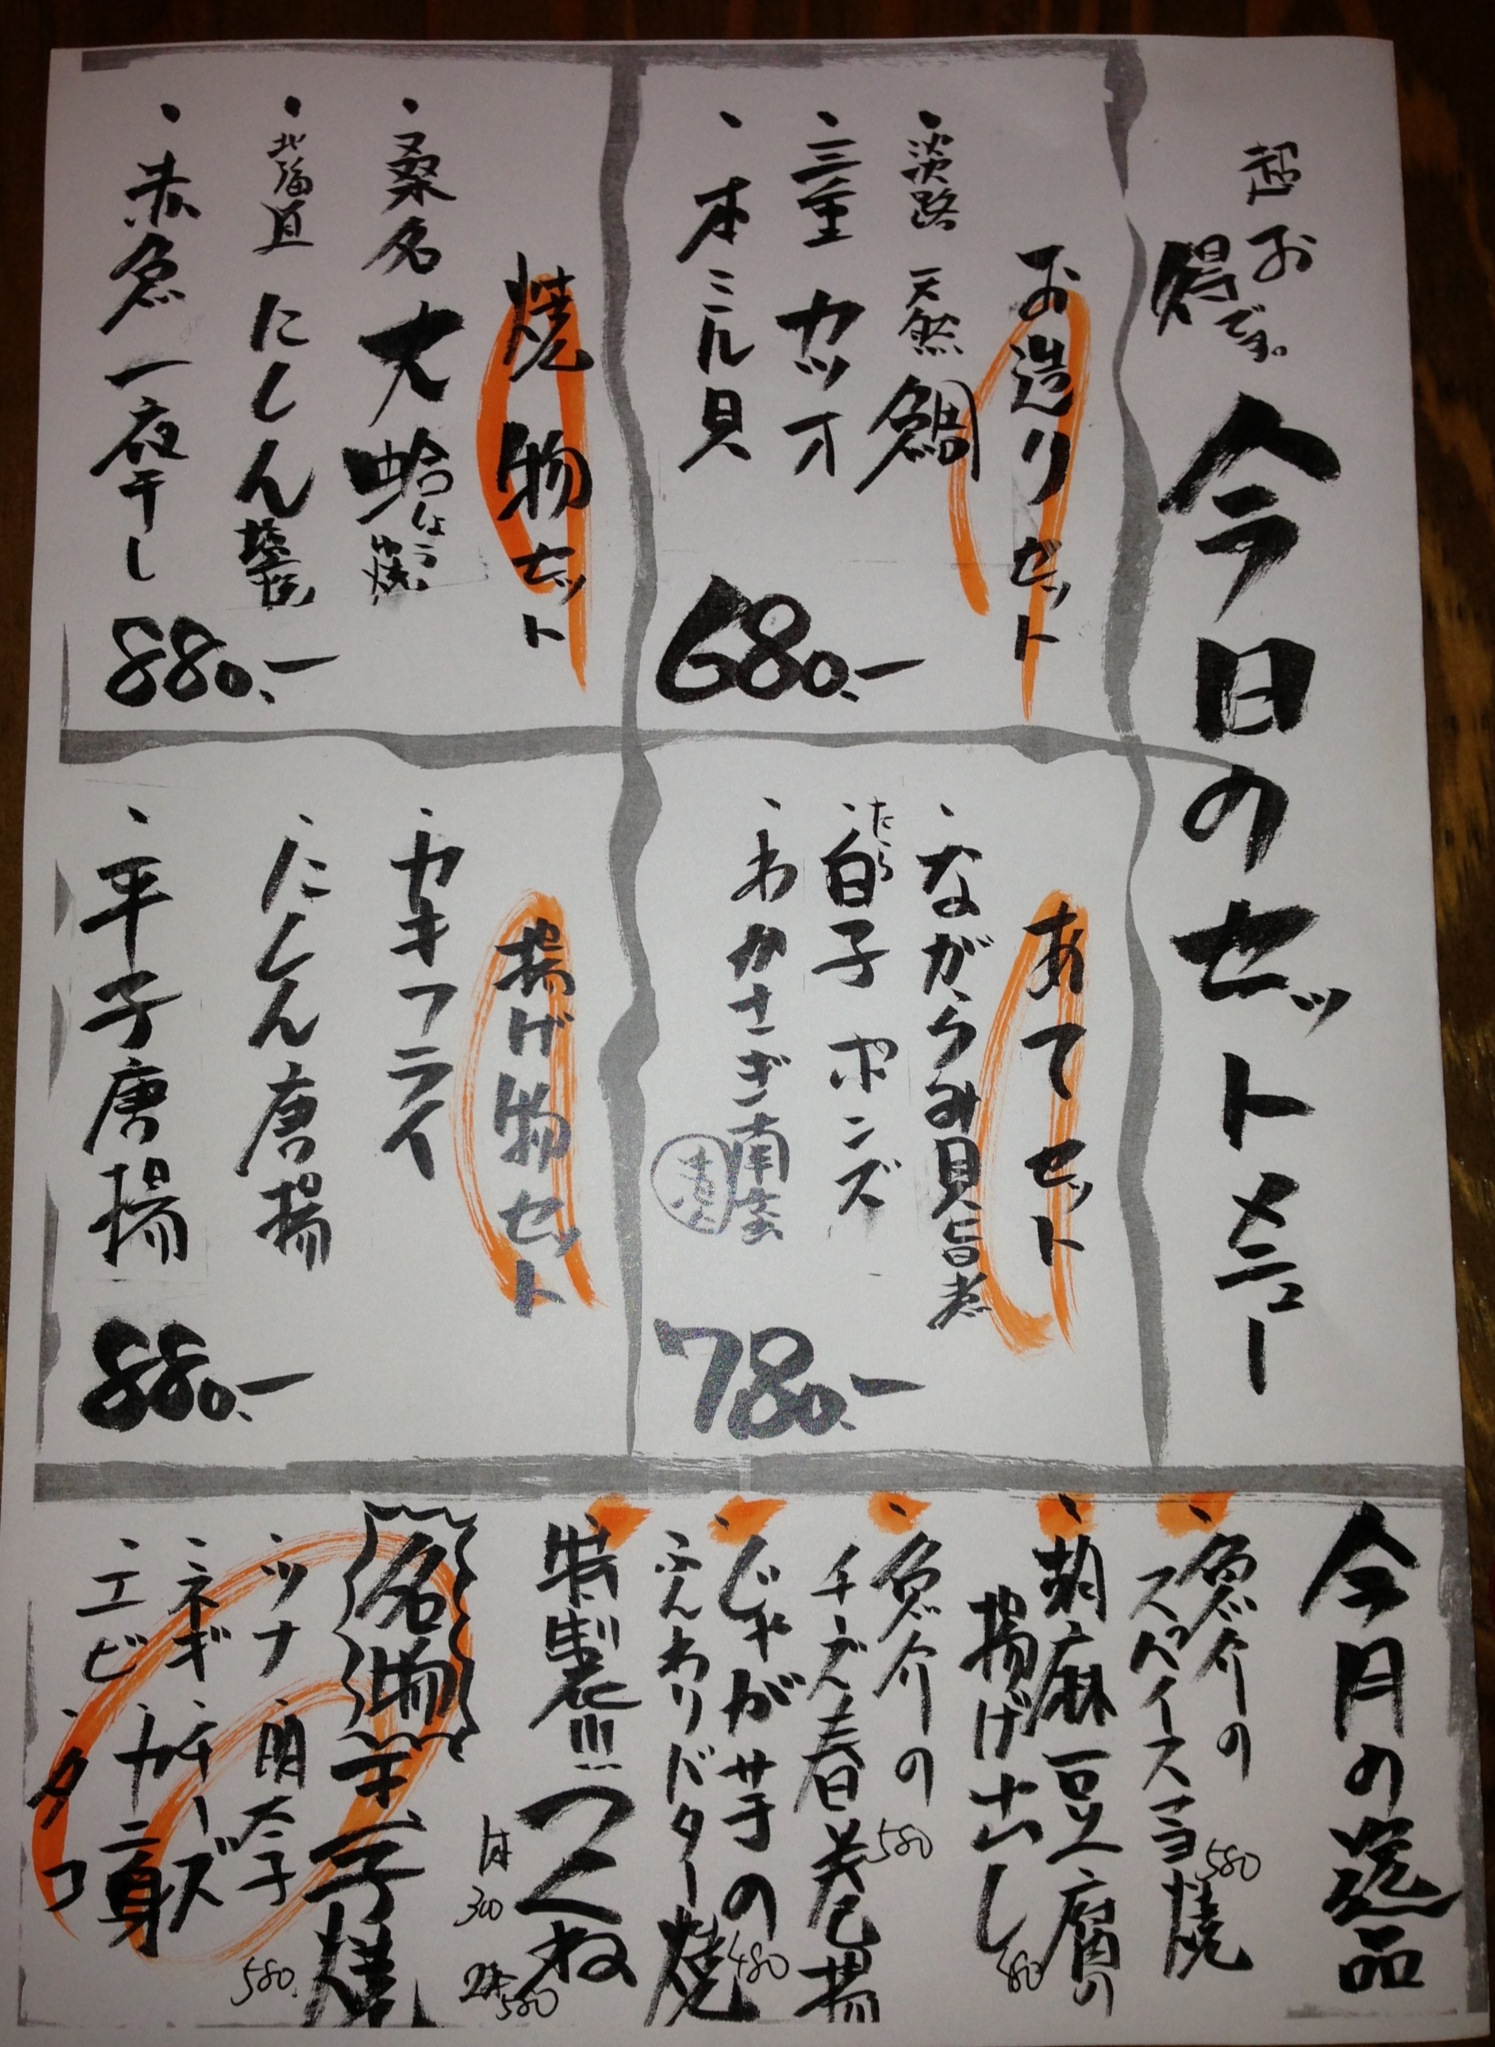 超お得です。
今日のセットメニュー
お造りセット
・淡路 天然 鯛
・三重 カツオ
・本ミル貝
680.-
焼物セット
・桑名 大蛤しょうゆ焼
・北海道 にしん塩焼
・赤魚一夜干し
880.-
あてセット
・ながらみ貝旨煮
・たら白子ポンズ
・わかさぎ南蛮
780.-
揚げ物セット
・カキフライ
・にしん唐揚
・平子唐揚
880.-
今月の逸品
・魚介の
スパイスマヨ焼
580
・胡麻豆腐の
揚げ出し
・魚介の
チーズ春巻揚
580
・じゃが芋の
ふんわりバター焼
480
・特製!!!つくね
1本300
2本580
名物 玉子焼
580.
・ツナ・明太子
・ネギ・チーズ
・エビ・カニ身
・タコ